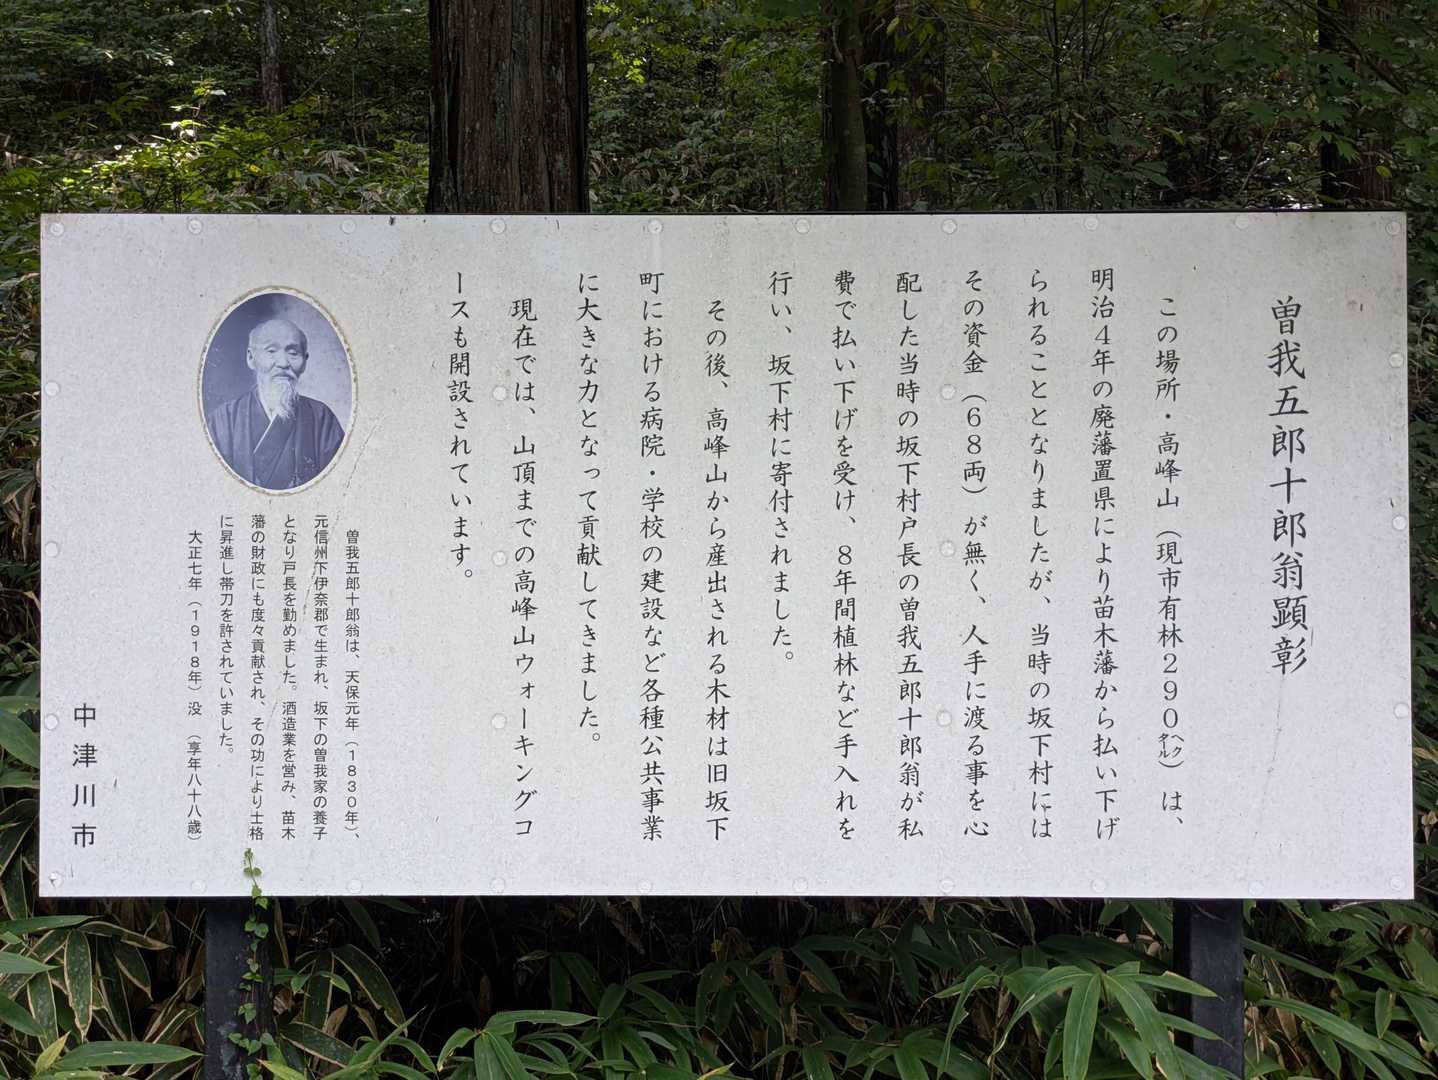 曽我五郎十郎翁顕彰
この場所・高峰山（現市有林２９０ヘクタール）は、
明治４年の廃藩置県により苗木藩から払い下げ
られることとなりましたが、当時の坂下村には
その資金（６８両）が無く、人手に渡る事を心
配した当時の坂下村戸長の曽我五郎十郎翁が私
費で払い下げを受け、８年間植林など手入れを
行い、坂下村に寄付されました。
その後、高峰山から産出される木材は旧坂下
町における病院・学校の建設など各種公共事業
に大きな力となって貢献してきました。
現在では、山頂までの高峰山ウォーキングコ
ースも開設されています。
曽我五郎十郎翁は、天保元年（１８３０年）、
元信州下伊奈郡で生まれ、坂下の曽我家の養子
となり戸長を勤めました。酒造業を営み、苗木
藩の財政にも度々貢献され、その功により士格
に昇進し帯刀を許されていました。
大正七年（１９１８年）没（享年八十八歳）
中津川市